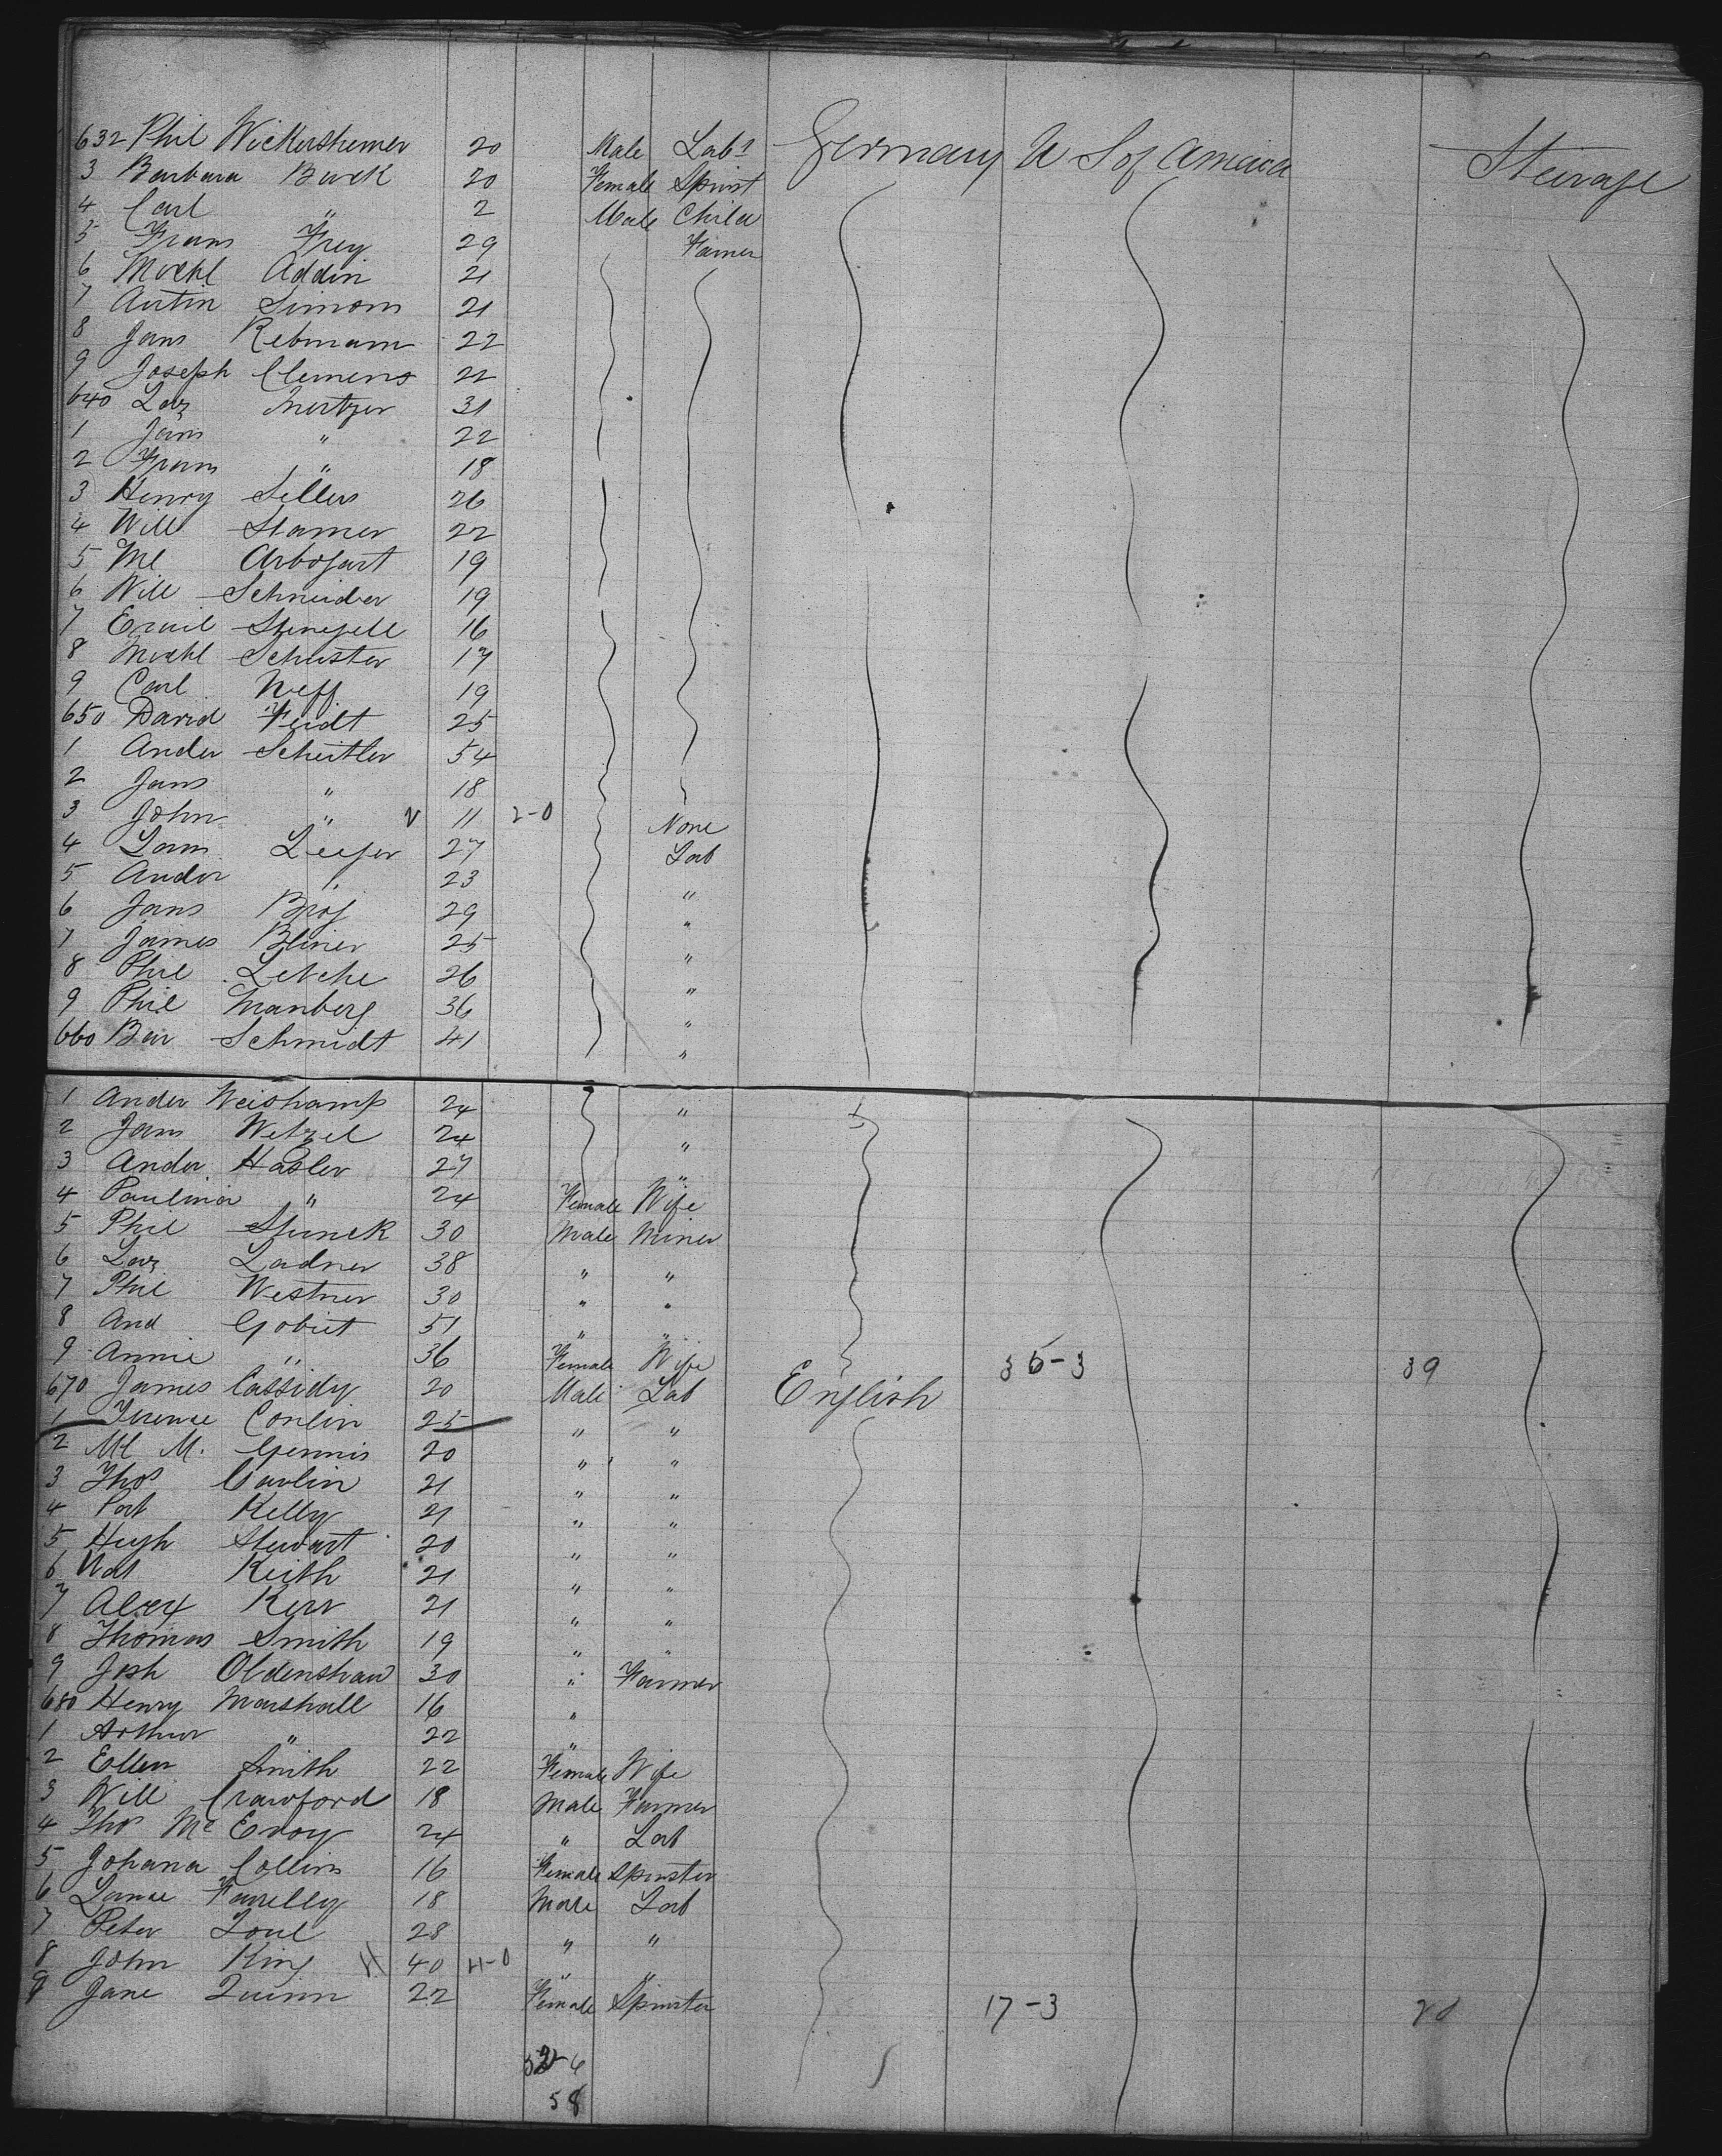 632 Phil Wickershemer 20 Male Labr Germany U S of America Steerage
3 Barbara Buck 20 Female Spinst
4 Carl " 2 Male Child
5 Frans Frey 29 Farmer
6 Michl Addin 21
7 Austin Simons 21
8 Jans Rebmann 22
9 Joseph Clemens 22
640 Laz Mertzer 31
1 Jans " 22
2 Frans " 18
3 Henry Sellers 26
4 Will Stamer 22
5 Ml Arbogart 19
6 Will Schneider 19
7 Emil 16
8 Michl Schuster 17
9 Carl Neff 19
650 David Feidt 25
1 Ander Scheitler 54
2 Jans " 18
3 John " 11 2-0 None
4 Lab 27
5 Ander " 23 "
6 Jans 29 "
7 James Bliner 25 "
8 Phil 26 "
9 Phil Manberg 36 "
660 Schmidt 41 "
1 Ander Weishamp 24 "
2 Jans Wetzel 24 "
3 Ander Hasler 27 "
4 Paulina " 24 Female Wife
5 Phil Stunck 30 Male Miner
6 Laz Ladner 38 " "
7 Phil Westner 30 " "
8 And Gobiet 51 " "
9 Annie " 36 Female Wife 36-3 39
670 James Cassidy 20 Male Lab English
1 Terence Conlin 25 " "
2 Ml M. Gennis 20 " "
3 Thos Carlin 21 " "
4 Pat Kelly 21 " "
5 Hugh Stewart 20 " "
6 Wat Keith 21 " "
7 Alex Kerr 21 " "
8 Thomas Smith 19 " "
9 Josh Oldenshaw 30 " Farmer
680 Henry Marshall 16 "
1 Arthur " 22 "
2 Ellen Smith 22 Female Wife
3 Will Crawford 18 Male Farmer
4 Thos Mc Evoy 24 " Lab
5 Johana Collins 16 Female Spinster
6 Lance Farrelly 18 Male Lab
7 Peter 28 " "
8 John King 40 " "
9 Jane Quinn 22 Female Spinster 17-3 20
52-6
58